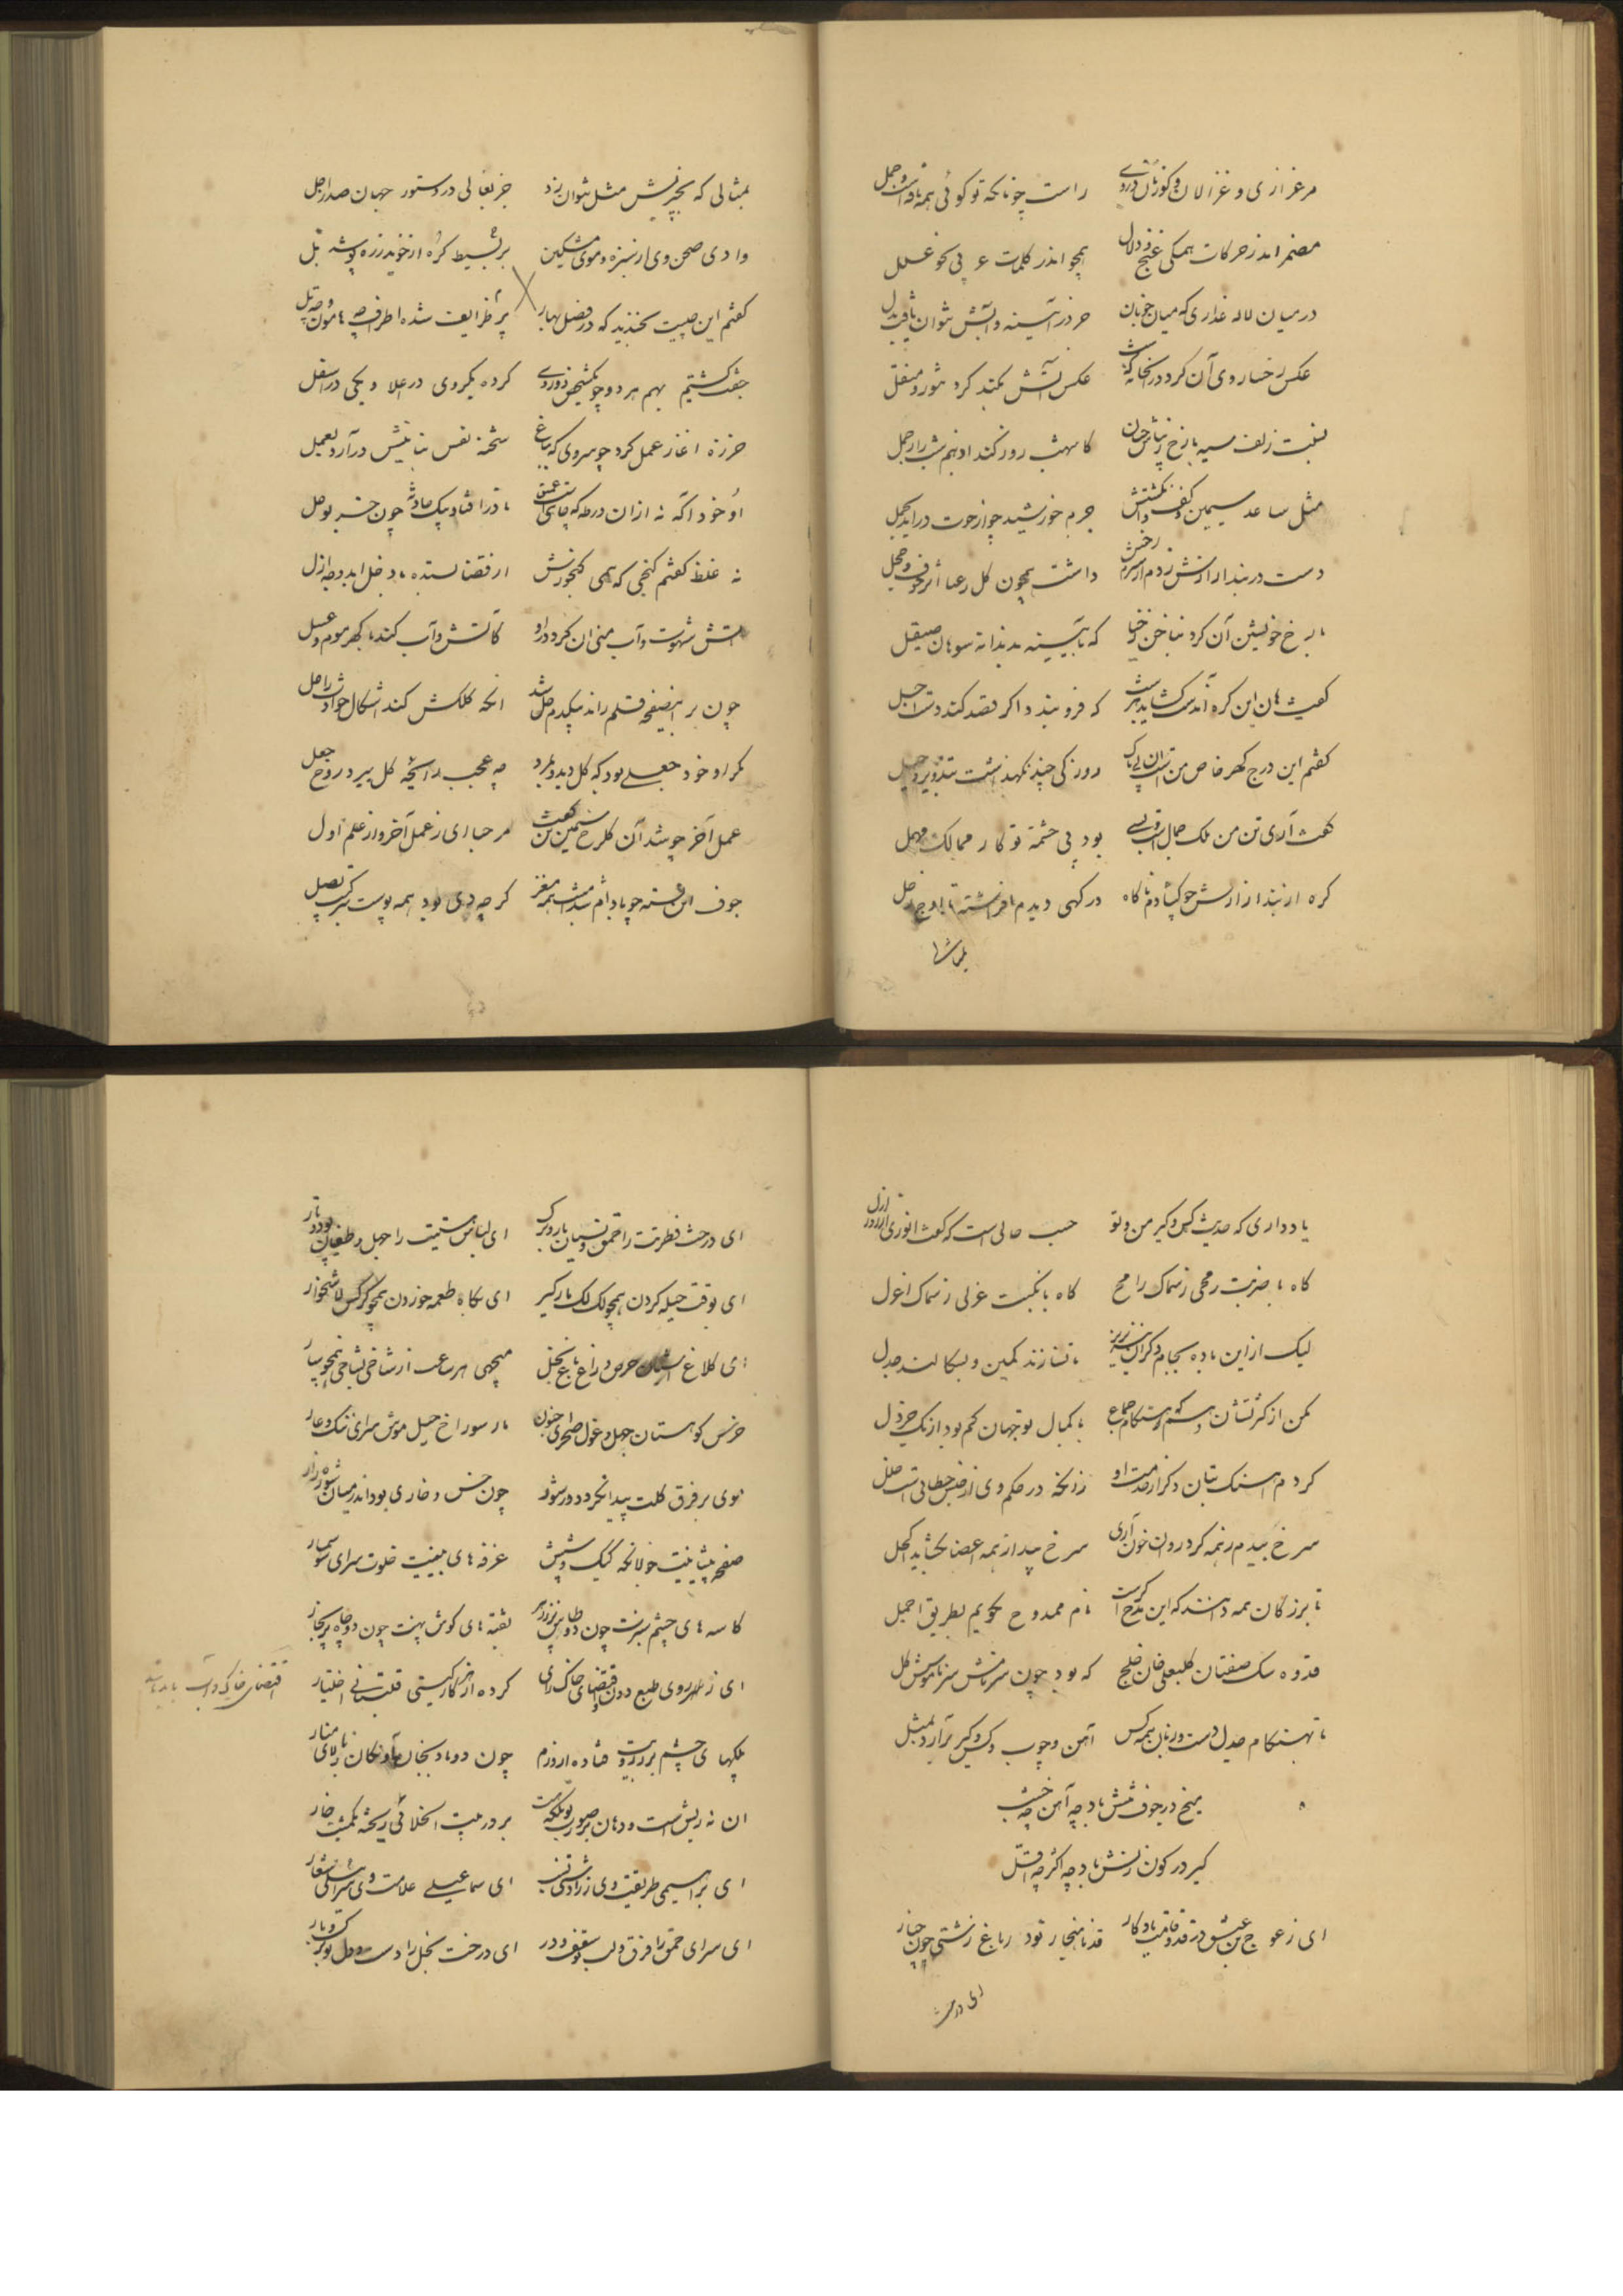 مرغزاری و غزالان و کوزنان در وی راست چونانکه تو گوئی همه با
مضمر اندر حرکات همگی غنج و دلال همچو اندر کلمات عربی نحو علل
در میان لاله عذاری که میان خوبان جز در آئینه و آبش نتوان یافت بدل
عکس رخسار وی آن کرد در آنجا که عکس آتش بکند کرد
نسبت زلف سیه با رخ کاسهش روز کند او نهم شب را
مثل ساعد سیمین و کف جرم خورشید چو از حوت درآید بحمل
دست در بند ازارش زدم از شرم رخش داشت همچون گل رعنا اثر خوف و خجل
با رخ خویشتن آن کرد بناخن که بآیینه بدندانه سوهان صیقل
گفت هان این گره آنست که فرو بندد اگر قصد کند دست اجل
گفتم این درج گهر خاص من است روزکی چند نگهداشت بتزویر و حیل
گفت آری تن من ملک جمال است ولی بود بی حشمت تو کار ممالک مهمل
گره از بند ازارش چو گشادم ناگاه در گهی دیدم افراشته تا اوج زحل
بمثالی که بچیزیش مثل نتوان زد جز بعالی در دستور جهان صدر اجل
وادی صحن وی از سبزه و موی مشکین بر بسیط کره از خوید زره پوشد تل
گفتم این چیست بخندید که در فصل بهار پر ظرایف شده اطراف چه هامون و چه تل
جفت گشتیم بهم هر دو چو یکشخص دو روی کرده یکروی در اعلا و یکی در اسفل
حرزه آغاز عمل کرد چو سروی که بباغ شحنه نفس نباتیش درآرد بعمل
او خود آگه نه از آن ورطه که پای عمق نادر افتاد بیک حادثه چون خر بوحل
نه غلط گفتم گنجی که همی گنجورش از قضا بستده با دخل ابد وجه ازل
آتش شهوت و آب منی آن کرد در او کاتش و آب کند با گهر موم و عسل
چون بر این صفحه قلم راند بیکدم حل شد آنچه کلکش کند اشکال حوادث را حل
مگر او خود جعلی بود که گل دید و بمرد چه عجب رائحه گل ببرد روح جعل
عمل آخر چو شد آن گلرخ سیمین تن گفت مرحبا ای ز عمل آخر و از علم اول
جوف این شسته چو بادام شد مغز گر چه دی بود همه پوست
یاد داری که حدیث کس و کیر من و تو حسب حالی است که گفت انوری
گاه با ضربت رمحی ز سماک رامح گاه با نکبت عزلی ز سماک اعزل
لیک از این باده بجام دگران نیز بریز تا نتازند کمین و نسگالند جدل
کمن از کثرتشان وسوسه هنگام جماع با کمال تو جهان کم بود از یک خردل
کردم آهنگ بتان دگر از خدمت او زانکه در حکم وی از جنس خطائیست خلل
سرخ بیدم ز همه کرد روان خون آری سرخ بید از همه اعضا بگشاید اکحل
تا بزرگان همه دانند که این مدح که راست نام ممدوح بگویم بطریق اجمل
قدوه سگ صفتان کلبعلی خان خلج که بود چون سر نامش سر ناموسش کل
تا بهنگام جدل دست و زبان همه کس آهن و چوب و کس و کیر برآرد بمثل
میخ در جوف تنش باد چه آهن چه خشب
کیر در کون زنش باد چه اکثر چه اقل
ای ز عوج بن عنق در قد و قامت یادگار قد ناهنجار تو در باغ زشتی چون چنار
ای درخت فطرتت را حمق و نسیان بار و برگ ای لباس هستیت را جهل و طغیان پود و تار
ای بوقت حیله کردن همچو لک لک بارگیر ای بگاه طعمه خوردن همچو کرکس لاشخوار
ای کلاغ حرص و زاغ باغ بخل میجهی هر ساعت از شاخی بشاخی همچو سار
خرس کوهستان جهل و غول صحرای جنون مار سوراخ حیل موش سرای ننگ و عار
موی بر فرق کلت پیدا نگردد ور شود چون خس و خاری بود اندر میان شوره زار
صفحه پیشانیت جولانگه کیک و شپش غرفه های بینیت خلوت سرای سوسمار
کاسه های چشم سبزت چون دو طاس پر ز زهر نقبه های گوش پهنت چون دو چاه پر بخار
ای ز طبع دون قتضای خاک رای کرده از هر کار گیتی قلتبانی اختیار
پلکهای چشم بر رویت فتاده از ورم چون دو بادنجان مازندران بالای نار
آن نه ریش است و دهان بر صورت تو بلکه هست بر در بیت الخلائی ریخته یکمشت خار
ای براهیمی طریقت وی زرادشتی نسب ای سماعیلی علامت وی
ای سرای حمق را فرق و لب سقف و در ای درخت بخل را دست و دل تو برگ و بار